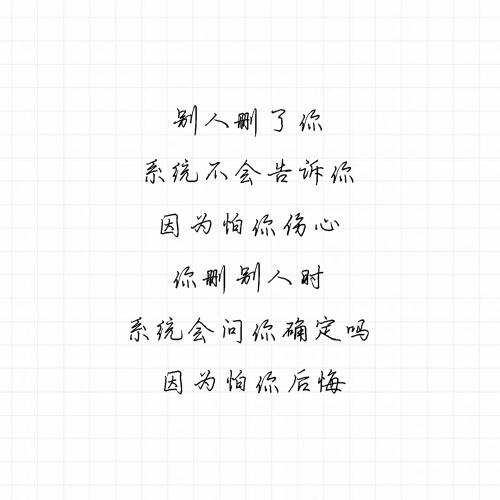 别人删了你
系统不会告诉你
因为怕你伤心
你删别人时
系统会问你确定吗
因为怕你后悔